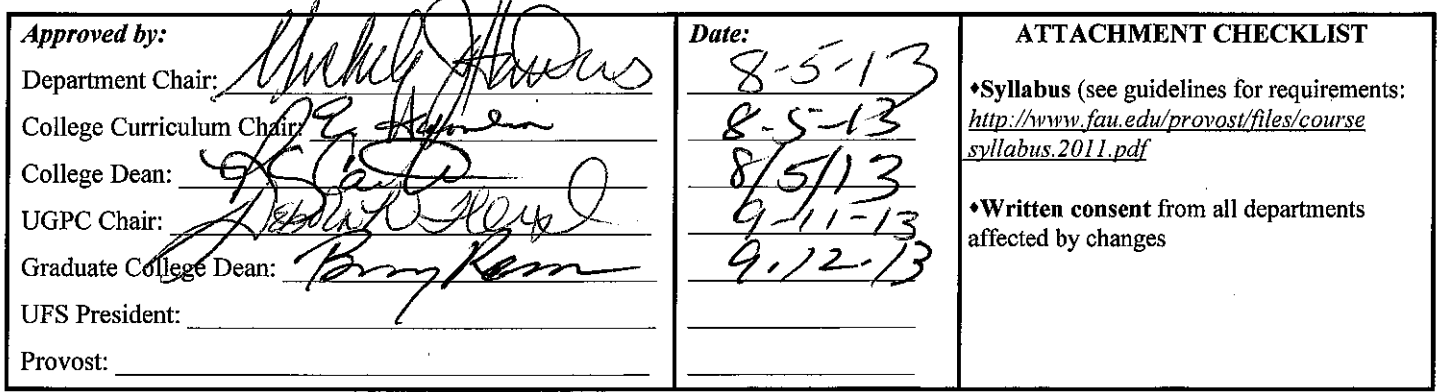 Approved by:
Department Chair: Michele Hawkins
College Curriculum Chair:
College Dean:
UGPC Chair: Deborah
Graduate College Dean: Barry
UFS President:
Provost:
Date:
8-5-13
8-5-13
8/5/13
9-11-13
9.12.13
ATTACHMENT CHECKLIST
♦Syllabus (see guidelines for requirements:
http://www.fau.edu/provost/files/course
syllabus.2011.pdf
♦Written consent from all departments
affected by changes